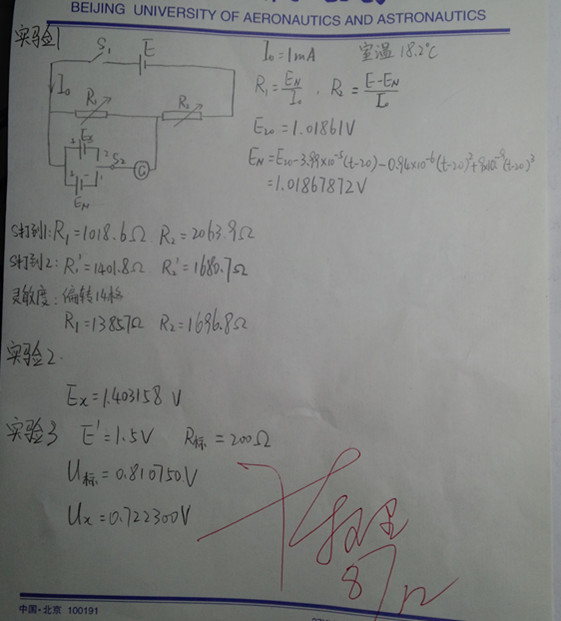 BEIJING UNIVERSITY OF AERONAUTICS AND ASTRONAUTICS
实验1
S₁ E
I₀
R₁ R₂
Ex
S₂ G
E_N
I₀=1mA 室温 18.2℃
R₁=E_N/I₀ , R₂=(E-E_N)/I₀
E₂₀=1.01861V
E_N=E₂₀-3.99×10⁻⁵(t-20)-0.94×10⁻⁶(t-20)²+9×10⁻⁹(t-20)³
=1.01867872V
S打到1: R₁=1018.6Ω R₂=2063.9Ω
S打到2: R₁'=1401.8Ω R₂'=1680.7Ω
灵敏度: 偏转14格
R₁=1385.7Ω R₂=1696.8Ω
实验2.
Ex=1.403158 V
实验3 E'=1.5V R标=200Ω
U标=0.810750V
Ux=0.722300V
中国·北京 100191